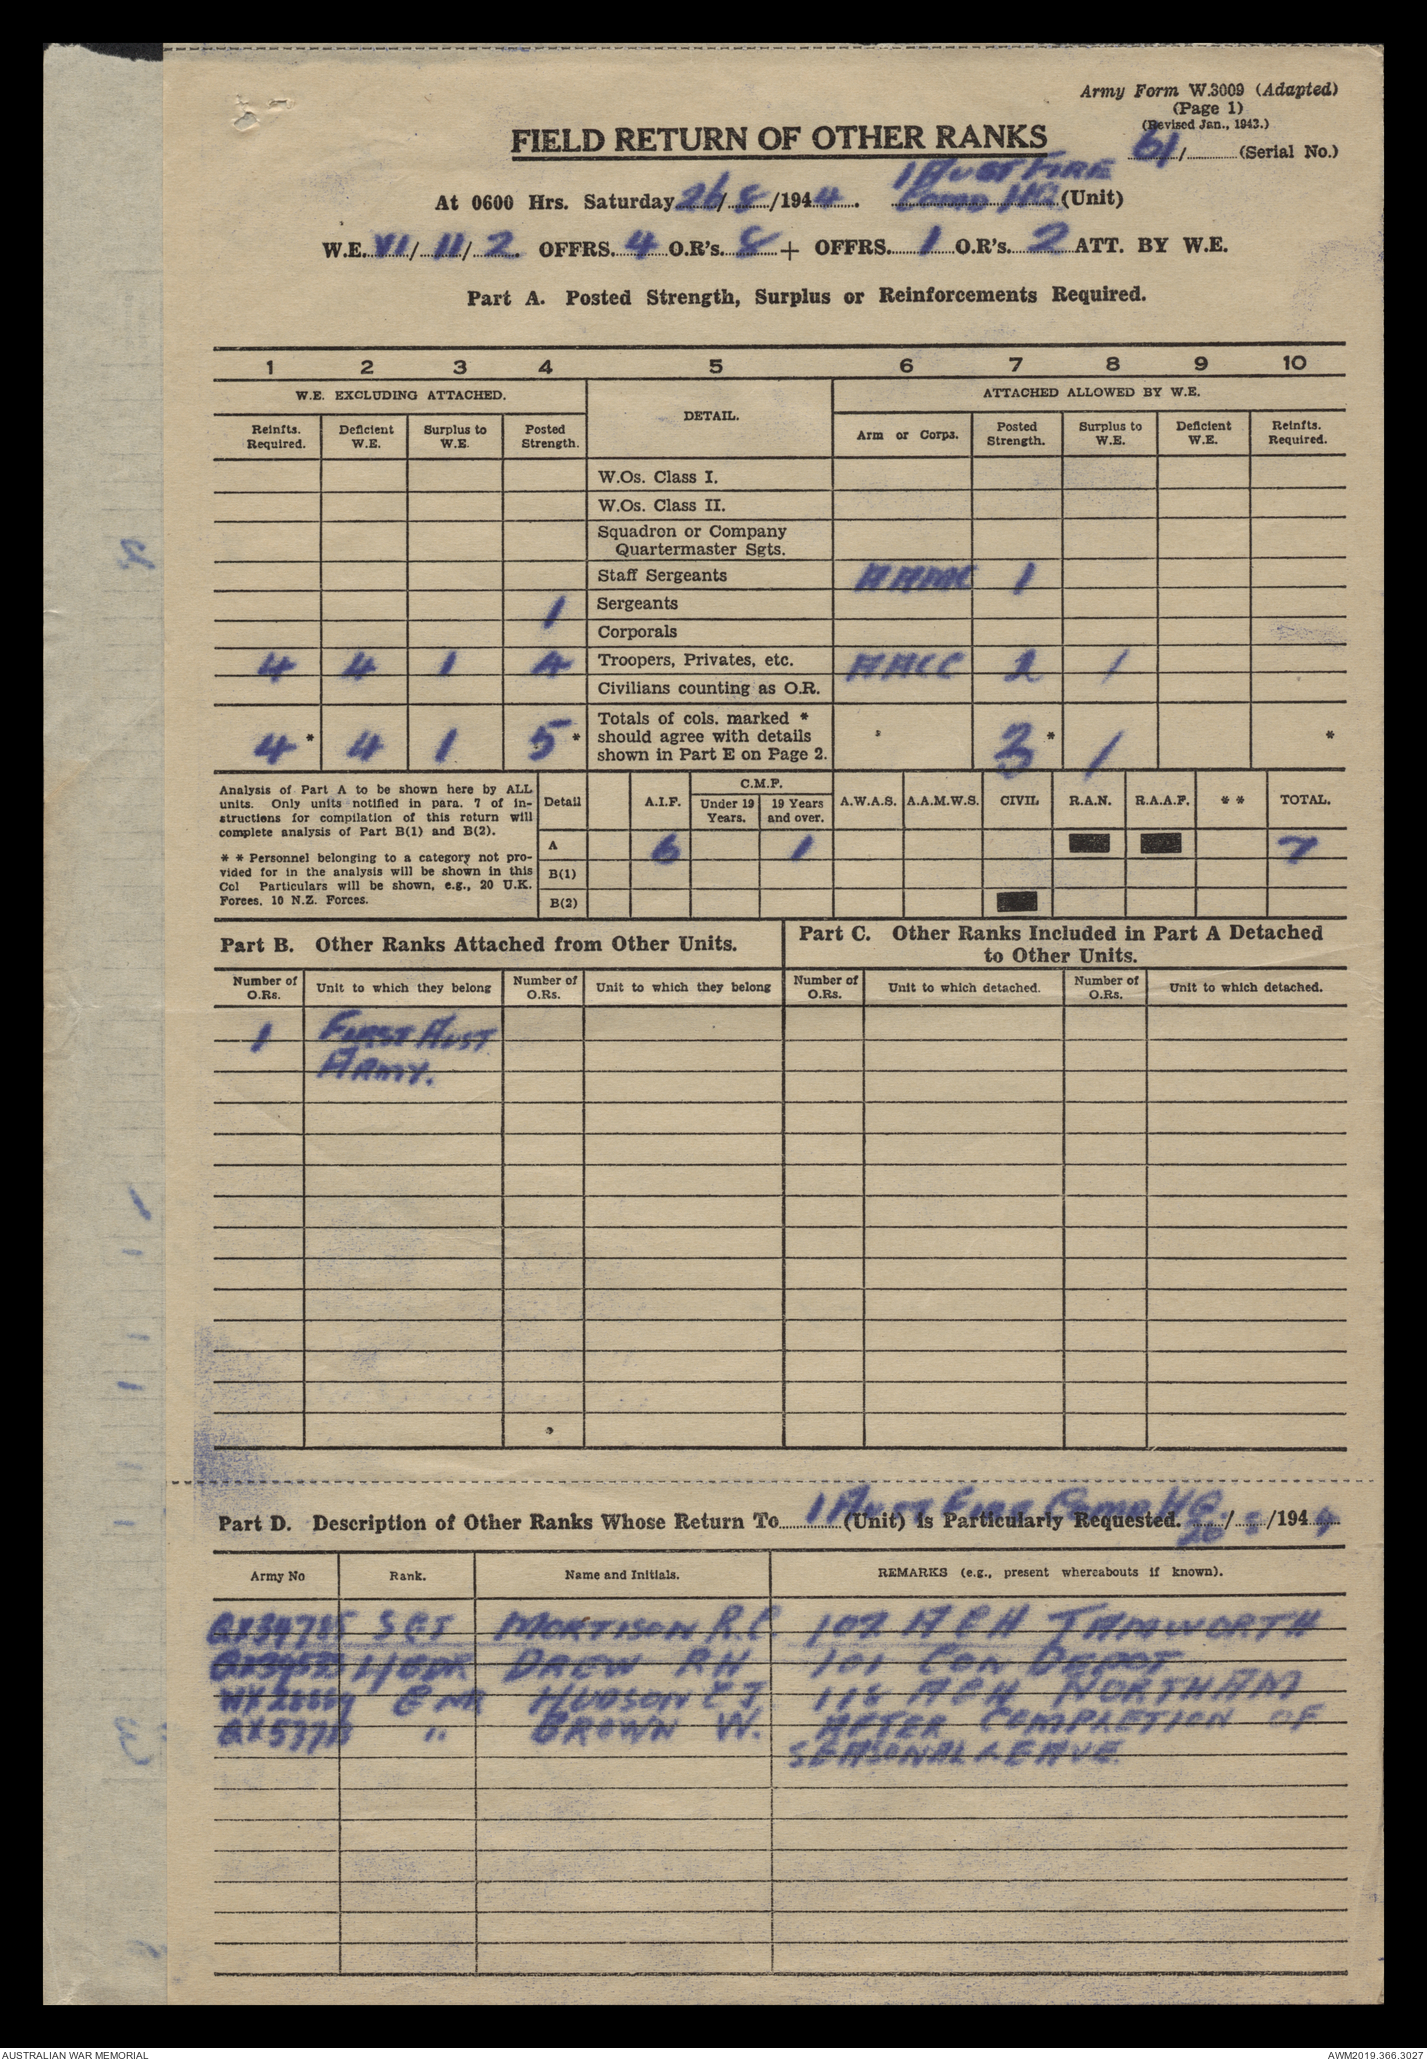 Army Form W.3009 (Adapted)
(Page 1)
(Revised Jan., 1943.)
FIELD RETURN OF OTHER RANKS
61/ (Serial No.)
At 0600 Hrs. Saturday 26/8/1944. 1 AUST FIRE COMD HQ (Unit)
W.E. VI/11/2. OFFRS. 4 O.R's. 8 + OFFRS. 1 O.R's. 2 ATT. BY W.E.
Part A. Posted Strength, Surplus or Reinforcements Required.
1 2 3 4 5 6 7 8 9 10
W.E. EXCLUDING ATTACHED. DETAIL. ATTACHED ALLOWED BY W.E.
Reinfts. Required. Deficient W.E. Surplus to W.E. Posted Strength. Arm or Corps. Posted Strength. Surplus to W.E. Deficient W.E. Reinfts. Required.
W.Os. Class I.
W.Os. Class II.
Squadron or Company
Quartermaster Sgts.
Staff Sergeants AAMC 1
1 Sergeants
Corporals
4 4 1 4 Troopers, Privates, etc. AACC 2 1
Civilians counting as O.R.
Totals of cols. marked *
should agree with details
shown in Part E on Page 2.
4 * 4 1 5 * 3 * 1 *
Analysis of Part A to be shown here by ALL
units. Only units notified in para. 7 of in-
structions for compilation of this return will
complete analysis of Part B(1) and B(2).
* * Personnel belonging to a category not pro-
vided for in the analysis will be shown in this
Col Particulars will be shown, e.g., 20 U.K.
Forces, 10 N.Z. Forces.
Detail A.I.F. C.M.F. Under 19 Years. 19 Years and over. A.W.A.S. A.A.M.W.S. CIVIL R.A.N. R.A.A.F. * * TOTAL.
A 6 1 7
B(1)
B(2)
Part B. Other Ranks Attached from Other Units.
Part C. Other Ranks Included in Part A Detached
to Other Units.
Number of O.Rs. Unit to which they belong Number of O.Rs. Unit to which they belong Number of O.Rs. Unit to which detached. Number of O.Rs. Unit to which detached.
1 FIRST AUST
ARMY.
Part D. Description of Other Ranks Whose Return To 1 AUST FIRE COMD HQ (Unit) is Particularly Requested. / /1944
Army No Rank. Name and Initials. REMARKS (e.g., present whereabouts if known).
SGT MORTISON R.C. 102 ACH TAMWORTH
L/BDR DREW RH 101 CON DEPOT
GNR HUDSON C J 118 ACH NORTHAM
" BROWN W. AFTER COMPLETION OF
SEASONAL LEAVE.
AUSTRALIAN WAR MEMORIAL
AWM2019.366.3027